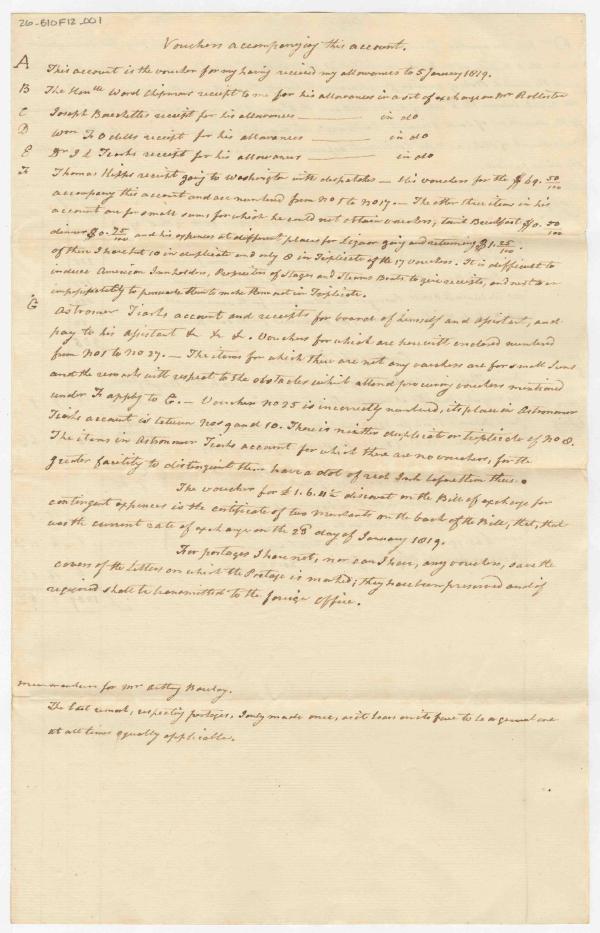 26-B10F12_001
Vouchers accompanying this account.
A This account is the voucher for my having received my allowances to 5 January 1819.
B The Honble Ward Chipmans receipt to me for his allowances in a set of exchange on Mr Rollester
C Joseph Bouchettes receipt for his allowances ——— in do
D Wm F Odells receipt for his allowances ——— in do
E Dr J L Tiarks receipt for his allowances ——— in do
F Thomas Hipps receipt going to Washington with dispatches — His vouchers for the $69. 50/100
accompany this account and are numbered from No 1 to No 17. — The other three items in his
account are for small sums for which he could not obtain vouchers, Breakfast $0. 50/100
dinner $0. 75/100 and his expences at different places for Liquor going and returning $1. 25/100.
of these I have but 10 in duplicate and only 8 in Triplicate of the 17 vouchers. It is difficult to
induce American Innholders, Proprietors of Stages and Steam Boats to give receipts, and next to an
impossibility to persuade them to make them out in Triplicate.
G Astronomer Tiarks account and receipts for board of himself and assistant, and
pay to his assistant &c &c &c. Vouchers for which are herewith enclosed numbered
from No 1 to No 27. — The items for which there are not any vouchers are for small sums
and the remarks with respect to the obstacles which attend procuring vouchers mentioned
under F apply to G. — Voucher No 25 is incorrectly numbered, its place in Astronomer
Tiarks account is between Nos 9 and 10. There is neither duplicate or triplicate of No 8.
The items in Astronomer Tiarks account for which there are no vouchers, for the
greater facility to distinguish them have a dot of red Ink before them thus .
The voucher for £1.6.11½ discount on the Bill of exchange for
contingent expences is the certificate of two Merchants on the back of the Bill, that, that
was the current rate of exchange on the 28th day of January 1819.
For postages I have not, nor can I have, any vouchers, save the
covers of the Letters on which the Postage is marked; they have been preserved and if
required shall be transmitted to the foreign office.
Memorandum for Mr Anthy Barclay.
The last remark, respecting postages, I only made once, as it bears on its face to be a general one
at all times equally applicable.